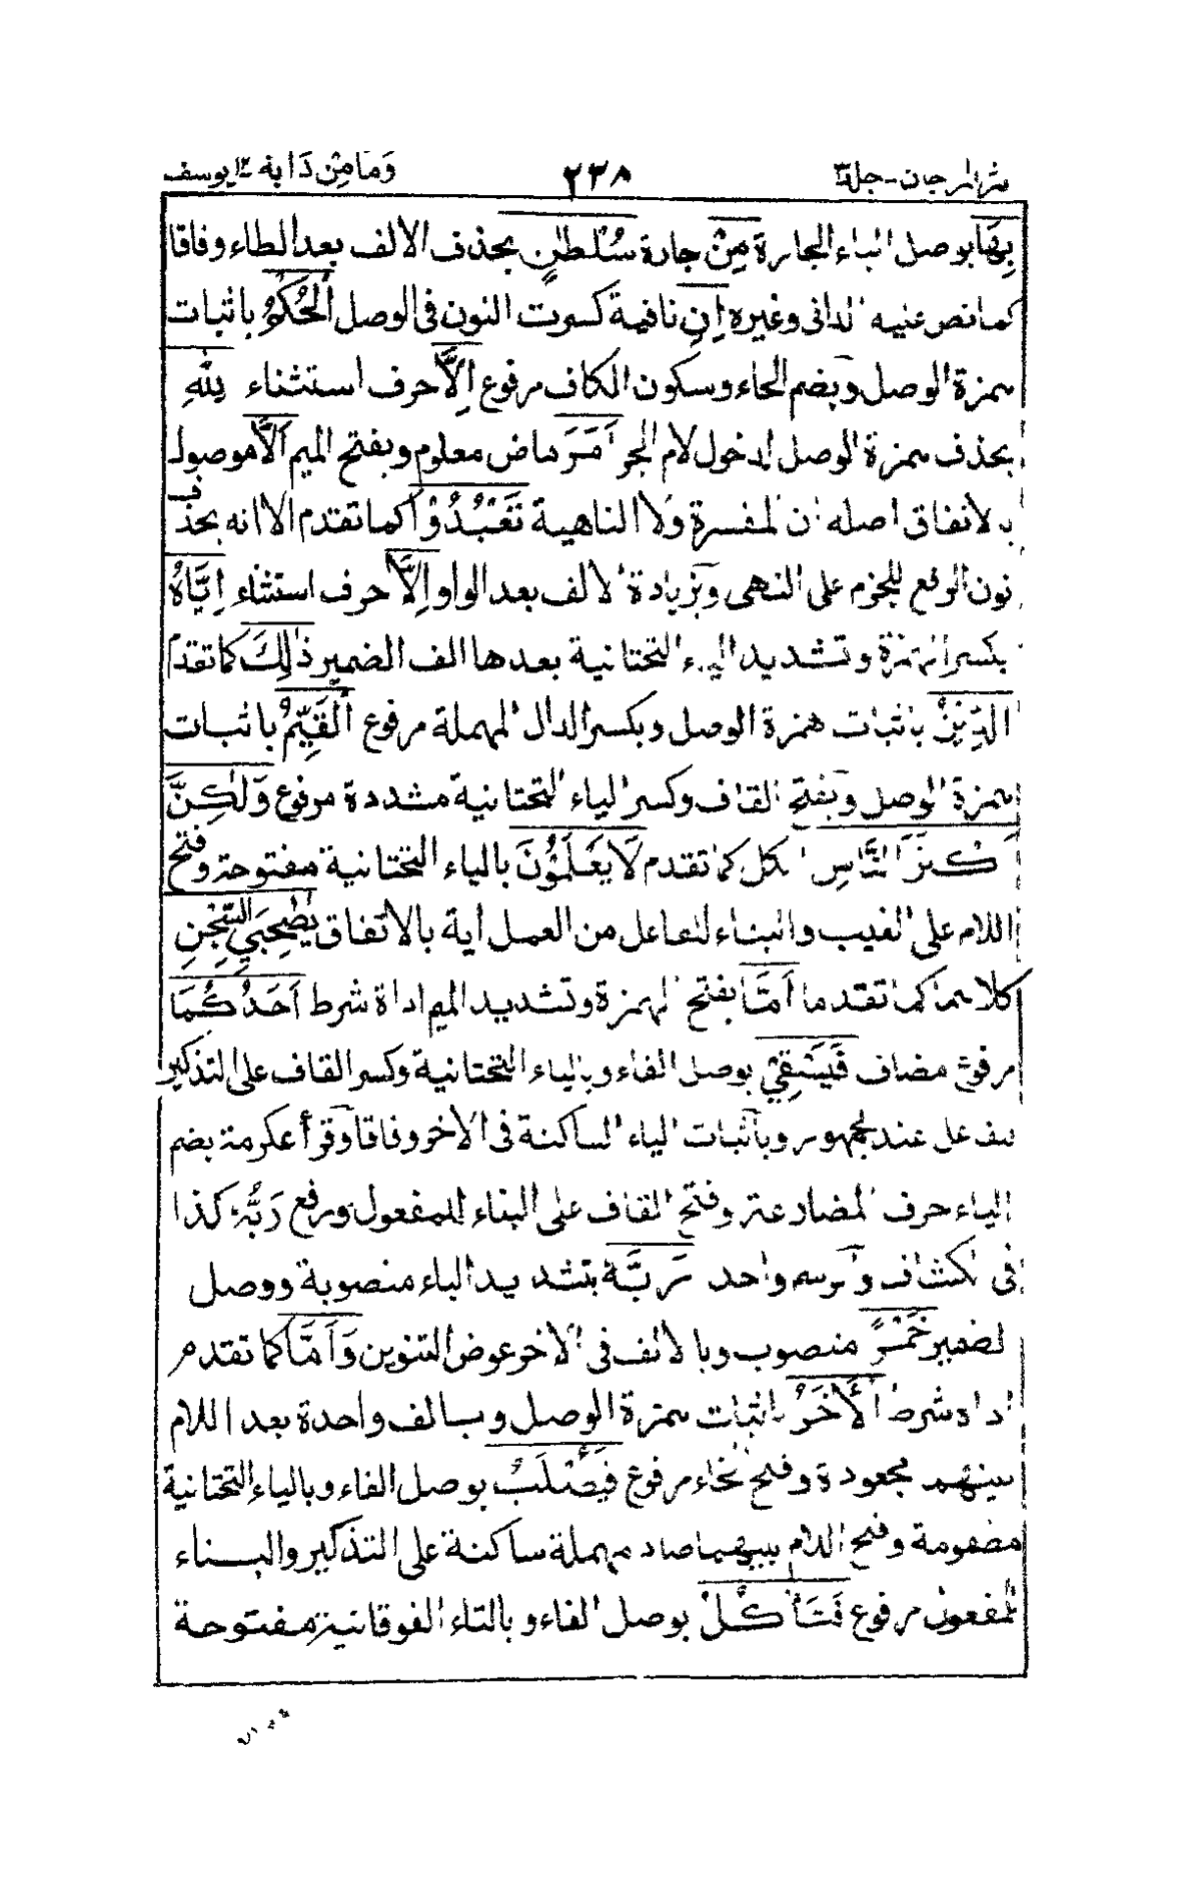 نثر المرجان - جلد ٣ ٢٣٨ وَمَا مِنْ دَابَّة ١٢ يوسف
بِهَا بوصل الباء الجارة مِنْ جارة سُلْطٰنٍ بحذف الالف بعد الطاء وفاقا
كما نص عليه الدانى وغيره اِنِ نافية كسرت النون فى الوصل الْحُكْمُ باثبات
همزة الوصل وبضم الحاء وسكون الكاف مرفوع اِلَّا حرف استثناء لِلّٰهِ
بحذف همزة الوصل لدخول لام الجر اَمَرَ ماض معلوم وبفتح الميم اَلَّا موصول
بالاتفاق اصله ان المفسرة ولا الناهية تَعْبُدُوْا كما تقدم الا انه بحذف
نون الرفع للجزم على النهى وبزيادة الالف بعد الواو اِلَّا حرف استثناء اِيَّاهُ
بكسر الهمزة وتشديد الياء التحتانية بعدها الف الضمير ذٰلِكَ كما تقدم
الدِّيْنُ باثبات همزة الوصل وبكسر الدال المهملة مرفوع الْقَيِّمُ باثبات
همزة الوصل وبفتح القاف وكسر الياء التحتانية مشددة مرفوع وَلٰكِنَّ
اَكْثَرَ النَّاسِ الكل كما تقدم لَا يَعْلَمُوْنَ بالياء التحتانية مفتوحة وفتح
اللام على الغيب والبناء للفاعل من العمل اية بالاتفاق يٰصٰحِبَيِ السِّجْنِ
كلاهما كما تقدما اَمَّا بفتح الهمزة وتشديد الميم اداة شرط اَحَدُكُمَا
مرفوع مضاف فَيَسْقِيْ بوصل الفاء وبالياء التحتانية وكسر القاف على التذكير
للفاعل عند الجمهور وباثبات الياء الساكنة فى الاخر وفاقا وقرأ عكرمة بضم
الياء حرف المضارعة وفتح القاف على البناء للمفعول ورفع رَبُّهُ كذا
فى الكشاف والرسم واحد رَبَّهٗ بتشديد الباء منصوبة ووصل
الضمير خَمْرًا منصوب وبالالف فى الاخر عوض التنوين وَاَمَّا كما تقدم
اداة شرط الْاٰخَرُ باثبات همزة الوصل وبالف واحدة بعد اللام
بينهما مجعودة وفتح الخاء مرفوع فَيُصْلَبُ بوصل الفاء وبالياء التحتانية
مضمومة وفتح اللام بينهما صاد مهملة ساكنة على التذكير والبناء
للمفعول مرفوع فَتَاْكُلُ بوصل الفاء وبالتاء الفوقانية مفتوحة